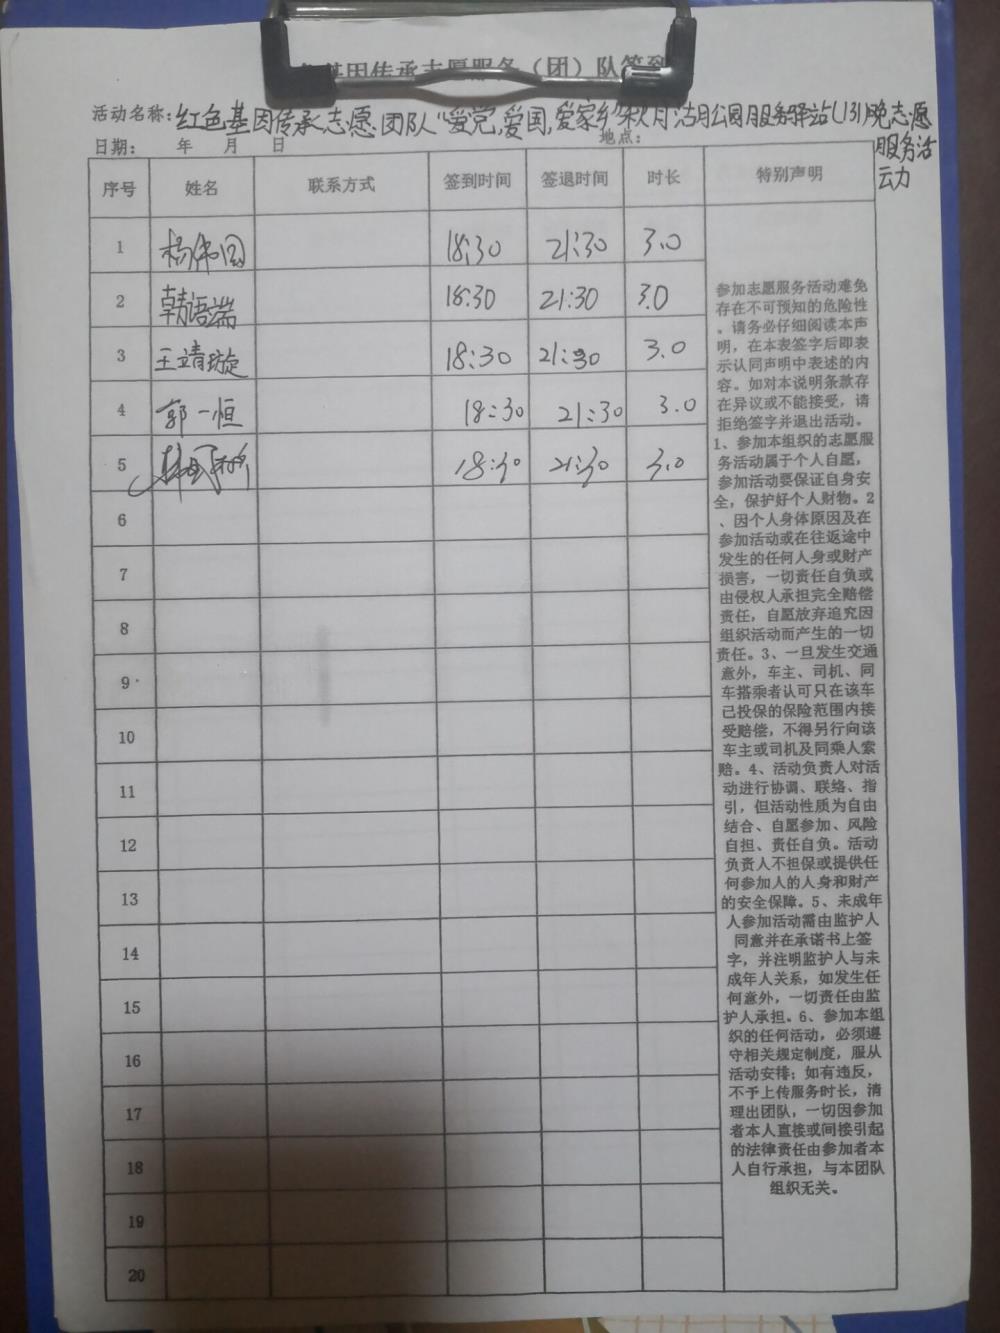 基因传承志愿服务（团）队签到
活动名称：红色基因传承志愿团队“爱党,爱国,爱家乡”秋月湖公园服务驿站(131)晚志愿
服务活
动
日期： 年 月 日 地点：
序号 姓名 联系方式 签到时间 签退时间 时长 特别声明
1 杨伟国 18:30 21:30 3.0
2 韩语端 18:30 21:30 3.0
3 王靖璇 18:30 21:30 3.0
4 郭一恒 18:30 21:30 3.0
5 18:30 21:30 3.0
6
7
8
9
10
11
12
13
14
15
16
17
18
19
20
参加志愿服务活动难免
存在不可预知的危险性
。请务必仔细阅读本声
明，在本表签字后即表
示认同声明中表述的内
容。如对本说明条款存
在异议或不能接受，请
拒绝签字并退出活动。
1、参加本组织的志愿服
务活动属于个人自愿，
参加活动要保证自身安
全，保护好个人财物。2
、因个人身体原因及在
参加活动或在往返途中
发生的任何人身或财产
损害，一切责任自负或
由侵权人承担完全赔偿
责任，自愿放弃追究因
组织活动而产生的一切
责任。3、一旦发生交通
意外，车主、司机、同
车搭乘者认可只在该车
已投保的保险范围内接
受赔偿，不得另行向该
车主或司机及同乘人索
赔。4、活动负责人对活
动进行协调、联络、指
引，但活动性质为自由
结合、自愿参加、风险
自担、责任自负。活动
负责人不担保或提供任
何参加人的人身和财产
的安全保障。5、未成年
人参加活动需由监护人
同意并在承诺书上签
字，并注明监护人与未
成年人关系，如发生任
何意外，一切责任由监
护人承担。6、参加本组
织的任何活动，必须遵
守相关规定制度，服从
活动安排；如有违反，
不予上传服务时长，清
理出团队，一切因参加
者本人直接或间接引起
的法律责任由参加者本
人自行承担，与本团队
组织无关。